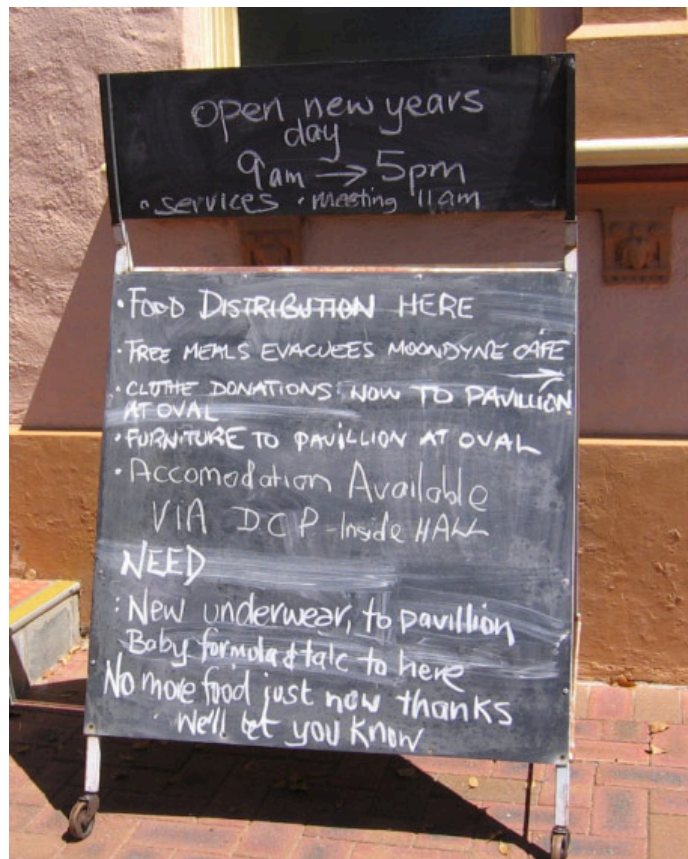 open new years
day
9am → 5pm
• services • meeting 11am
• FOOD DISTRIBUTION HERE
• FREE MEALS EVACUEES MOONDYNE CAFE
→
• CLOTHE DONATIONS: NOW TO PAVILLION
AT OVAL
• FURNITURE TO PAVILLION AT OVAL
• Accomodation Available
VIA DCP - Inside HALL
NEED
: New underwear, to pavillion
Baby formula & talc to here
No more food just now thanks
We'll let you know